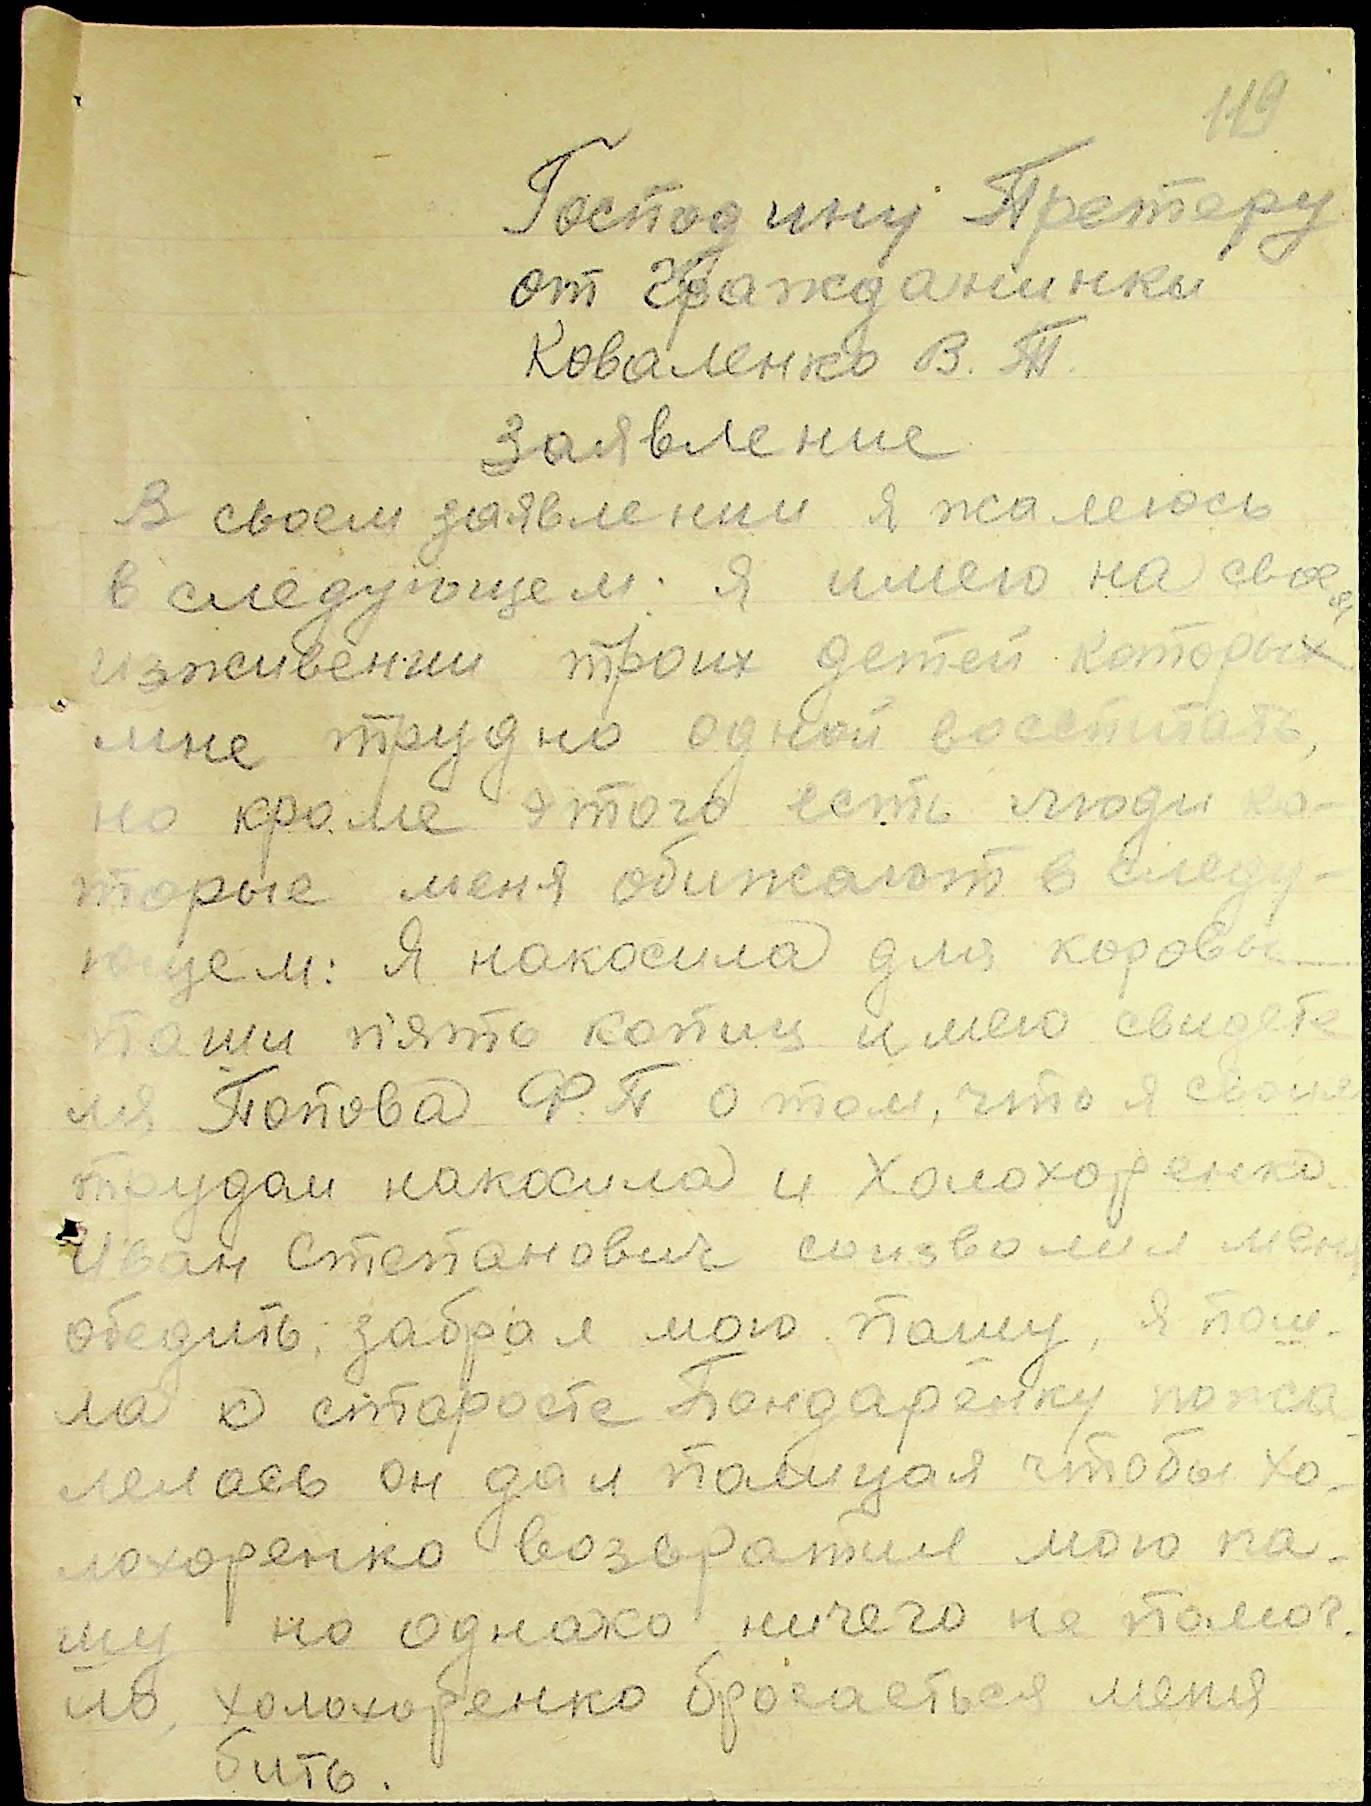 119
Господину Претеру
от Гражданинки
Коваленко В. Т.
Заявление
В своем заявлении я жалеюсь
в следующем: я имею на свое
изживении троих детей которых
мне трудно одной восспитать,
но кроме этого есть люди ко-
торые меня обижают в следу-
ющем: Я накосила для коровы
паши пять копиц имею свидете
ля Попова Ф. П о том, что я своим
трудом накосила и Холохоренко
Иван Степанович соизволил меня
обедить, забрал мою пашу, я пош-
ла к старосте Бондаренку пожа
лелась он дал палицая чтобы Хо-
лохоренко возвратил мою па-
шу но однако ничего не помог-
ло, холохоренко бросаеться меня
бить.